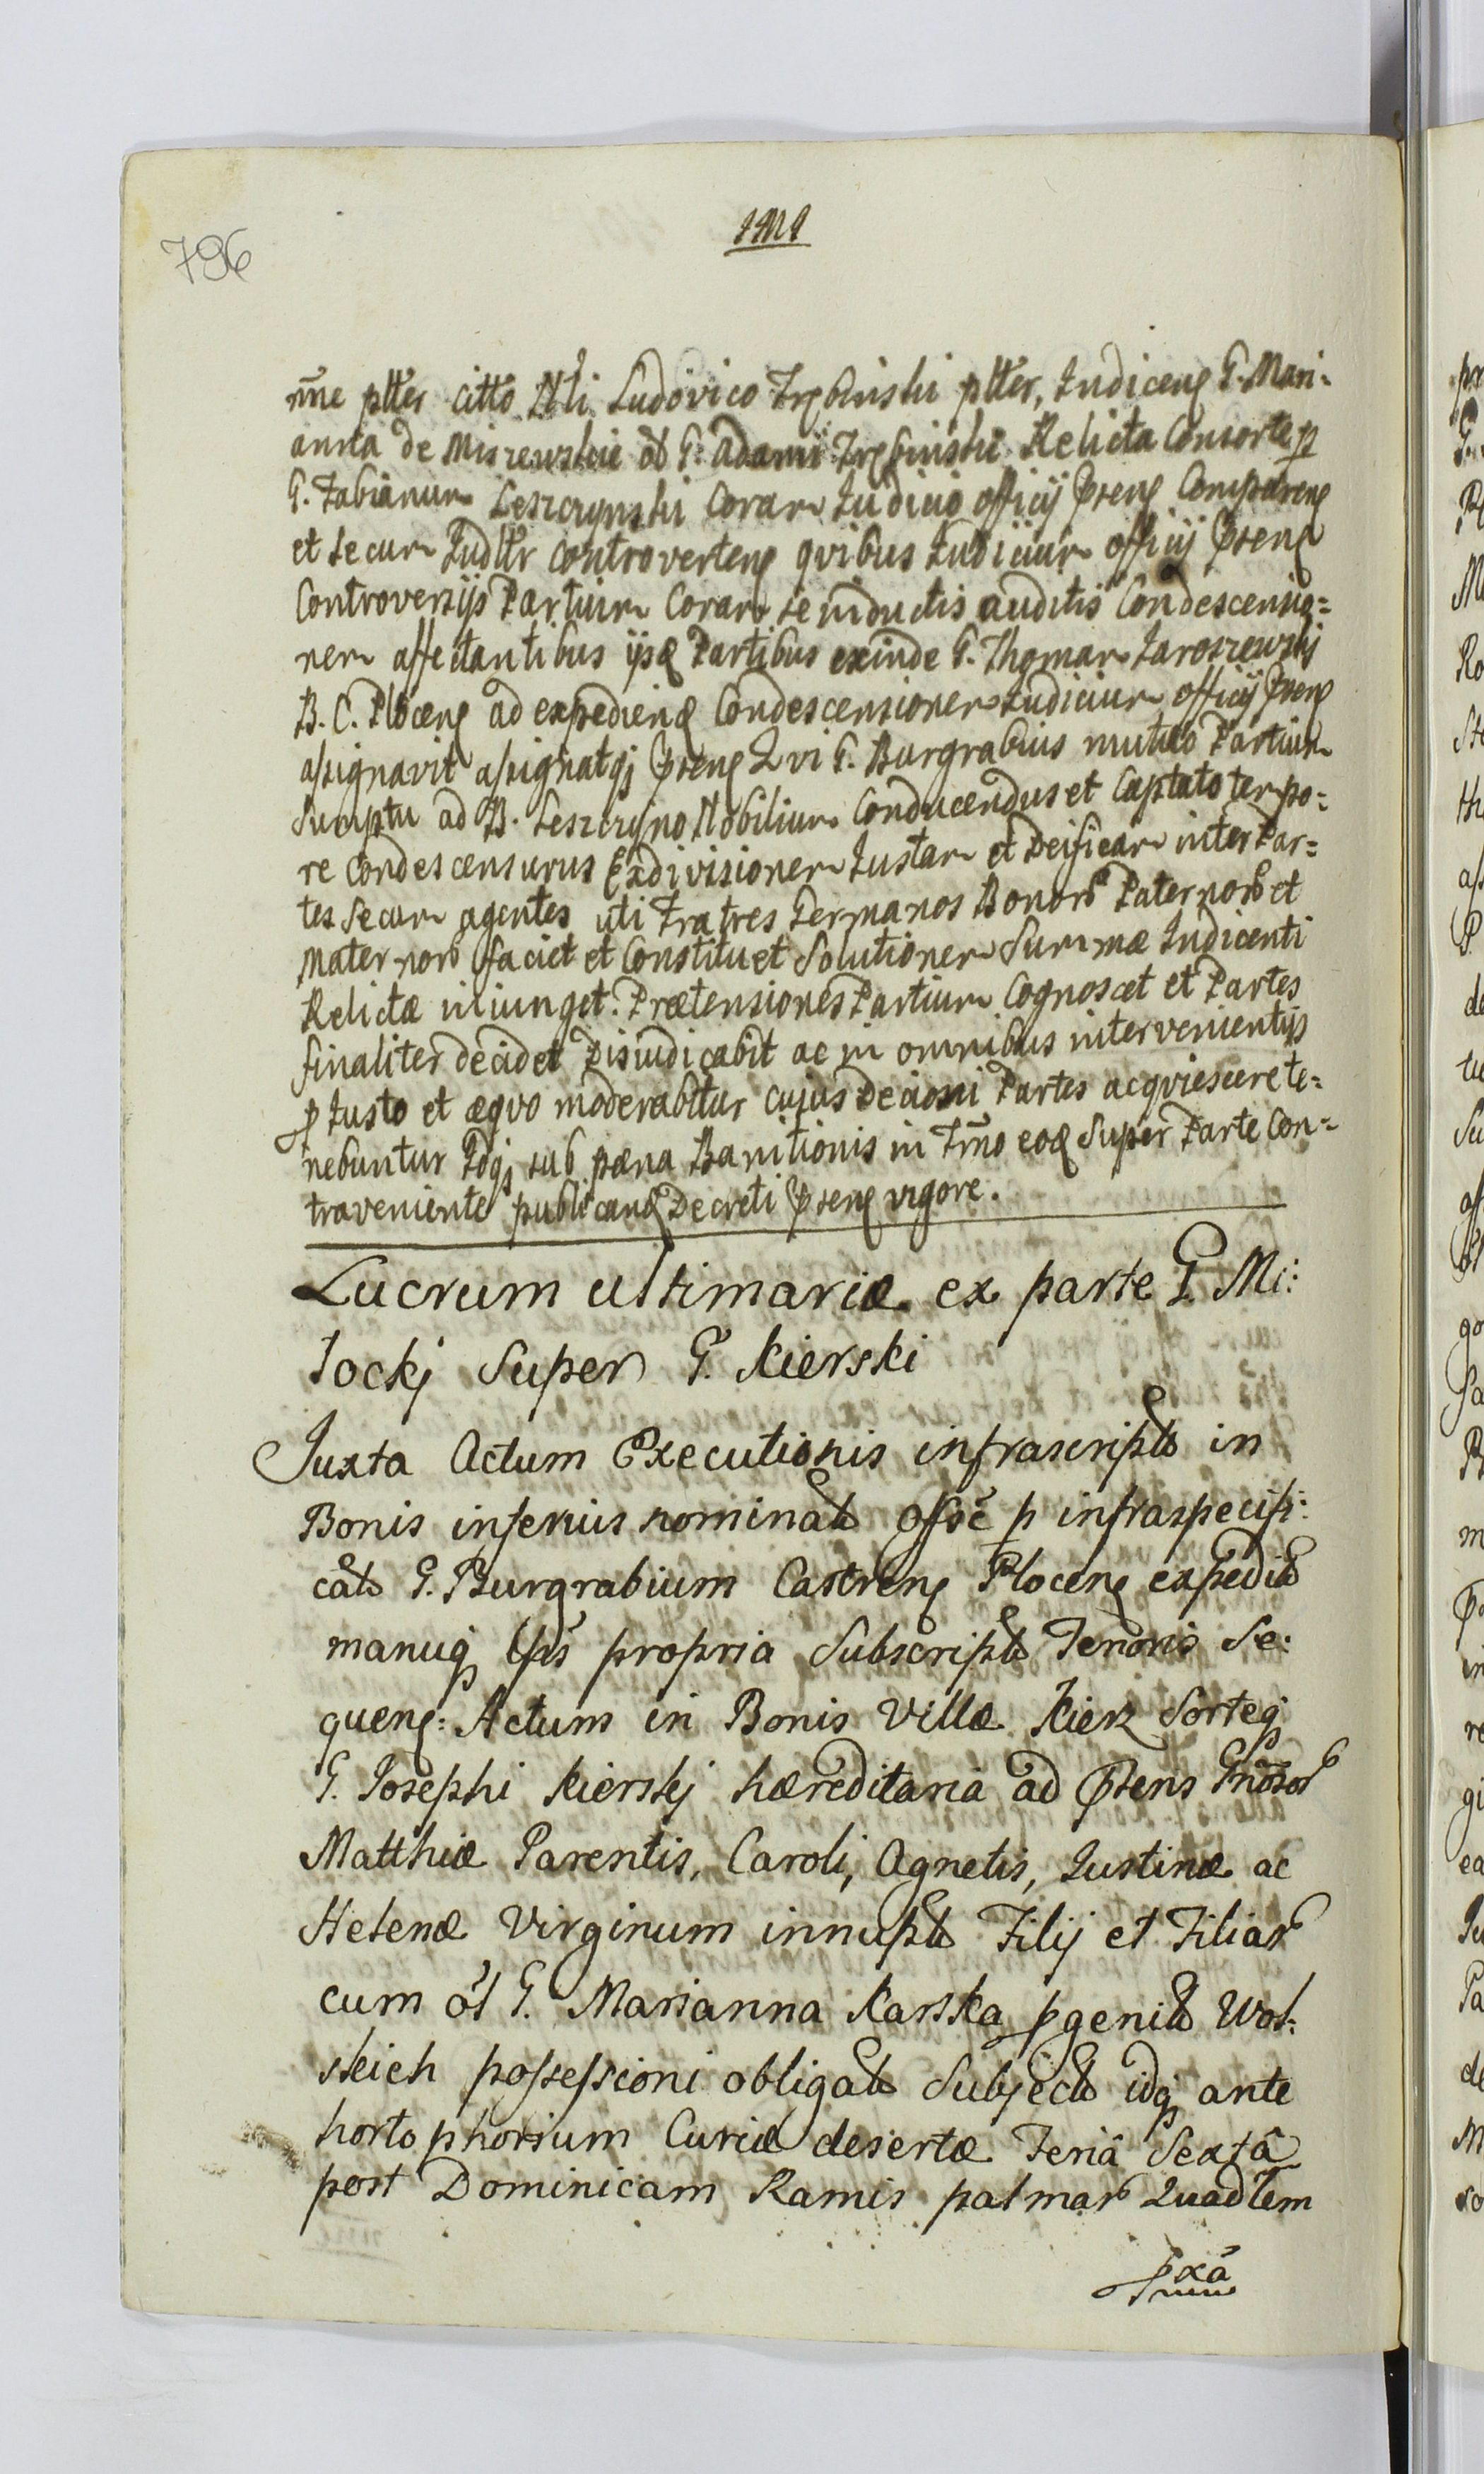 796
rñe ptter citto Nli Ludovico Trębinski ptter, Judiceng G. Mari-
anna de Miszewskie ol G. Adami Trębinski Relicta Consorte p
G. Fabianum Leszczynski Coram Judicio officij pseng Compareng
et secum Judltr controverteng qvibus Judicium officij pseng
Controversijs Partium Coram se inductis auditis Condescensio=
nem affectantibus ijsq Partibus exinde G. Thomam Jaroszewskj
B. C. Ploceng ad expediend Condescensionem Judicium officij pseng
assignavit assignatqj pseng Qvi G. Burgrabius mutuo Partium
Sumptu ad B. Leszczyno Nobilium Conducendus et Captato tempo=
re Condescensurus Exdivisionem Justam et Deificam inter Par=
tes secum agentes uti Fratres Germanos Bonor Paternor et
Maternor faciet et Constituet Solutionem Summæ Judicenti
Relictæ iniunget. Prætensiones Partium Cognoscet et Partes
finaliter decidet Disiudicabit ac in omnibus intervenientijs
p Justo et æqvo moderabitur cujus Decisioni Partes acqviescere te=
nebuntur Idqj sub pæna Banitionis in Tr̃no eoq Super Parte Con=
traveniente publicand Decreti pseng vigore.
Lucrum ultimariæ ex parte G. Mi:
lockj Super G. Kierski
Juxta Actum Executionis infrascript in
Bonis inferius nominat offsē p infraspecifi:
cat G. Burgrabium Castreng Ploceng expedit
manuq Ips propria Subscript Tenoris Se:
queng: Actum in Bonis Villæ Kierz Sorteq
G. Josephi Kierskj hæreditaria ad psens Gñosor
Matthiæ Parentis, Caroli, Agnetis, Justinæ ac
Helenæ Virginum innupt Filij et Filiar
cum ol G. Marianna Karska pgenit Wol:
skich possessioni obligat Subject idq ante
hortophorium Curiæ desertæ Feriâ Sextâ
post Dominicam Ramis palmar Quadlem
pxã